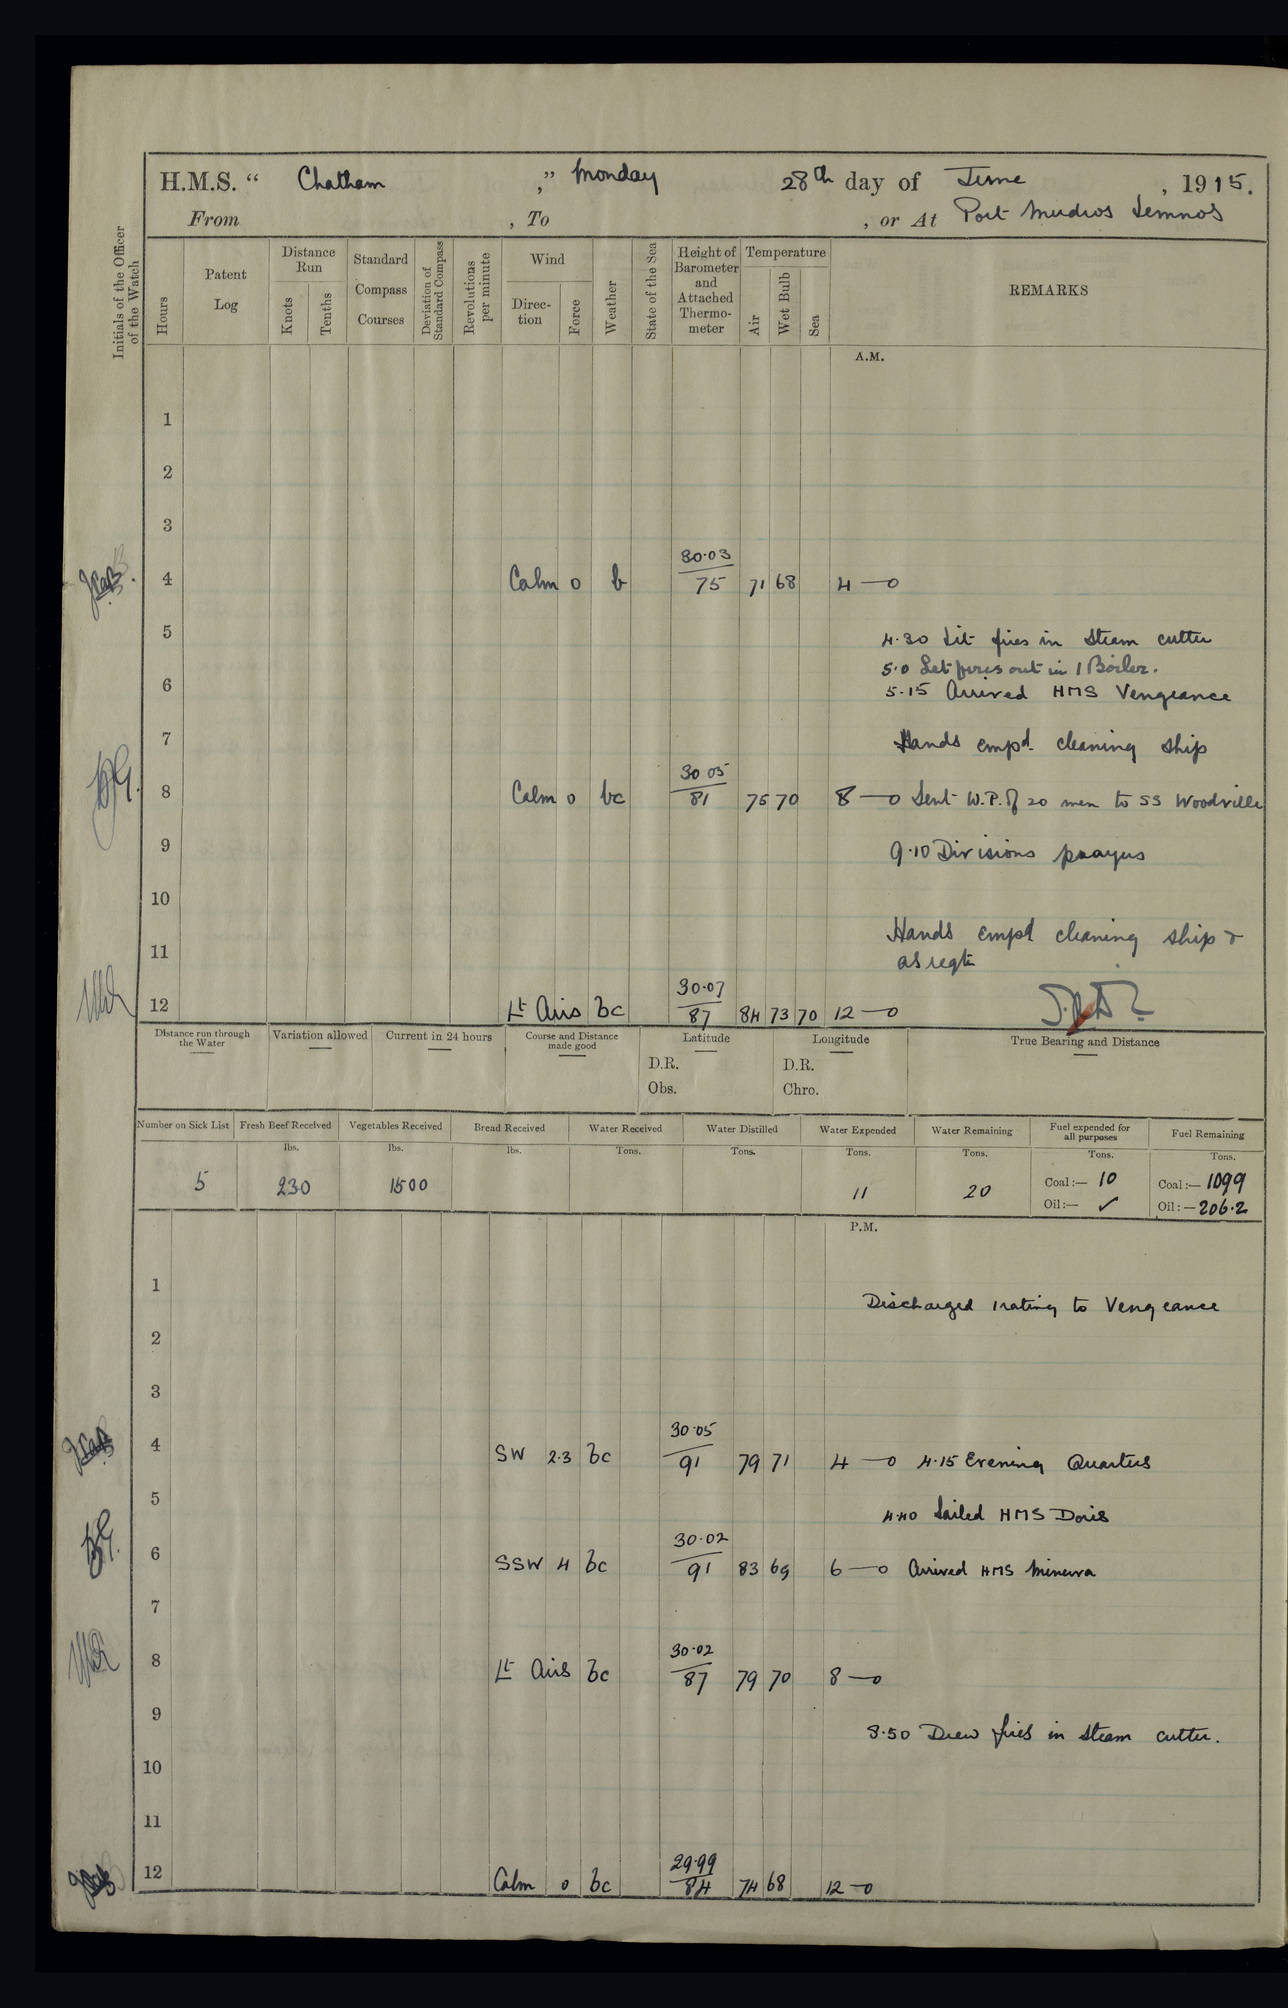 H.M.S. “ Chatham ,” Monday 28th day of June , 1915.
From , To , or At Port Mudros Lemnos
Initials of the Officer of the Watch
Hours
Patent Log
Distance Run
Knots
Tenths
Standard Compass Courses
Deviation of Standard Compass
Revolutions per minute
Wind
Direc-tion
Force
Weather
State of the Sea
Height of Barometer and Attached Thermo-meter
Temperature
Air
Wet Bulb
Sea
REMARKS
A.M.
1
2
3
30·03
4 Calm 0 b 75 71 68 4 —0
5
4·30 Lit fires in Steam cutter
5·0 Let fires out in 1 Boiler.
6
5·15 Arrived HMS Vengeance
7 Hands empd. cleaning ship
30 05
8 Calm 0 bc 81 75 70 8 —0 Sent W.P. of 20 men to SS Woodville
9 9·10 Divisions prayers
10
Hands empd cleaning ship &
11 as reqte
30·07
12 Lt Airs bc 87 84 73 70 12 —0
Distance run through the Water
Variation allowed
Current in 24 hours
Course and Distance made good
Latitude
D.R.
Obs.
Longitude
D.R.
Chro.
True Bearing and Distance
Number on Sick List Fresh Beef Received Vegetables Received Bread Received Water Received Water Distilled Water Expended Water Remaining Fuel expended for all purposes Fuel Remaining
lbs. lbs. lbs. Tons. Tons. Tons. Tons. Tons. Tons.
5 230 1500 11 20 Coal:— 10 Coal:— 1099
Oil:— ✓ Oil:— 206·2
P.M.
1
Discharged 1 rating to Vengeance
2
3
30·05
4 SW 2·3 bc 91 79 71 4 —0 4·15 Evening Quarters
5
4·40 Sailed HMS Doris
30·02
6 SSW 4 bc 91 83 69 6 —0 Arrived HMS Minerva
7
30·02
8 Lt Airs bc 87 79 70 8 —0
9
8·50 Drew fires in steam cutter.
10
11
29·99
12 Calm 0 bc 84 74 68 12 —0